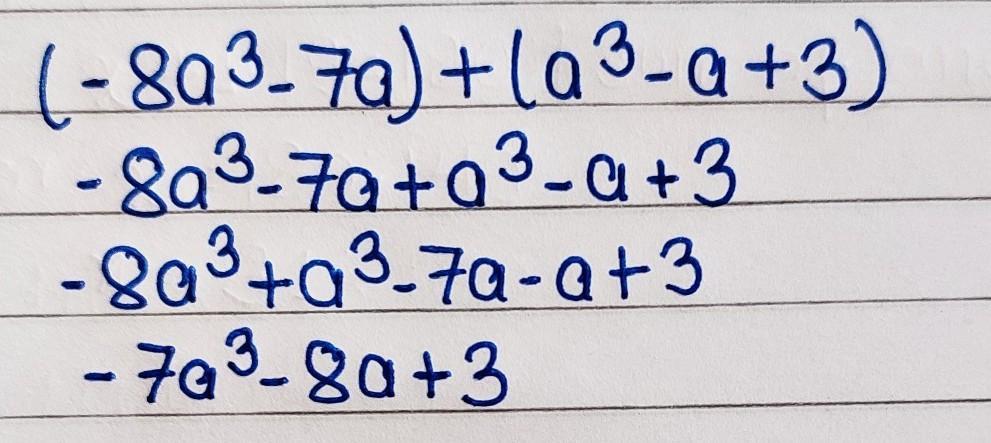 (-8a³-7a)+(a³-a+3)
-8a³-7a+a³-a+3
-8a³+a³-7a-a+3
-7a³-8a+3